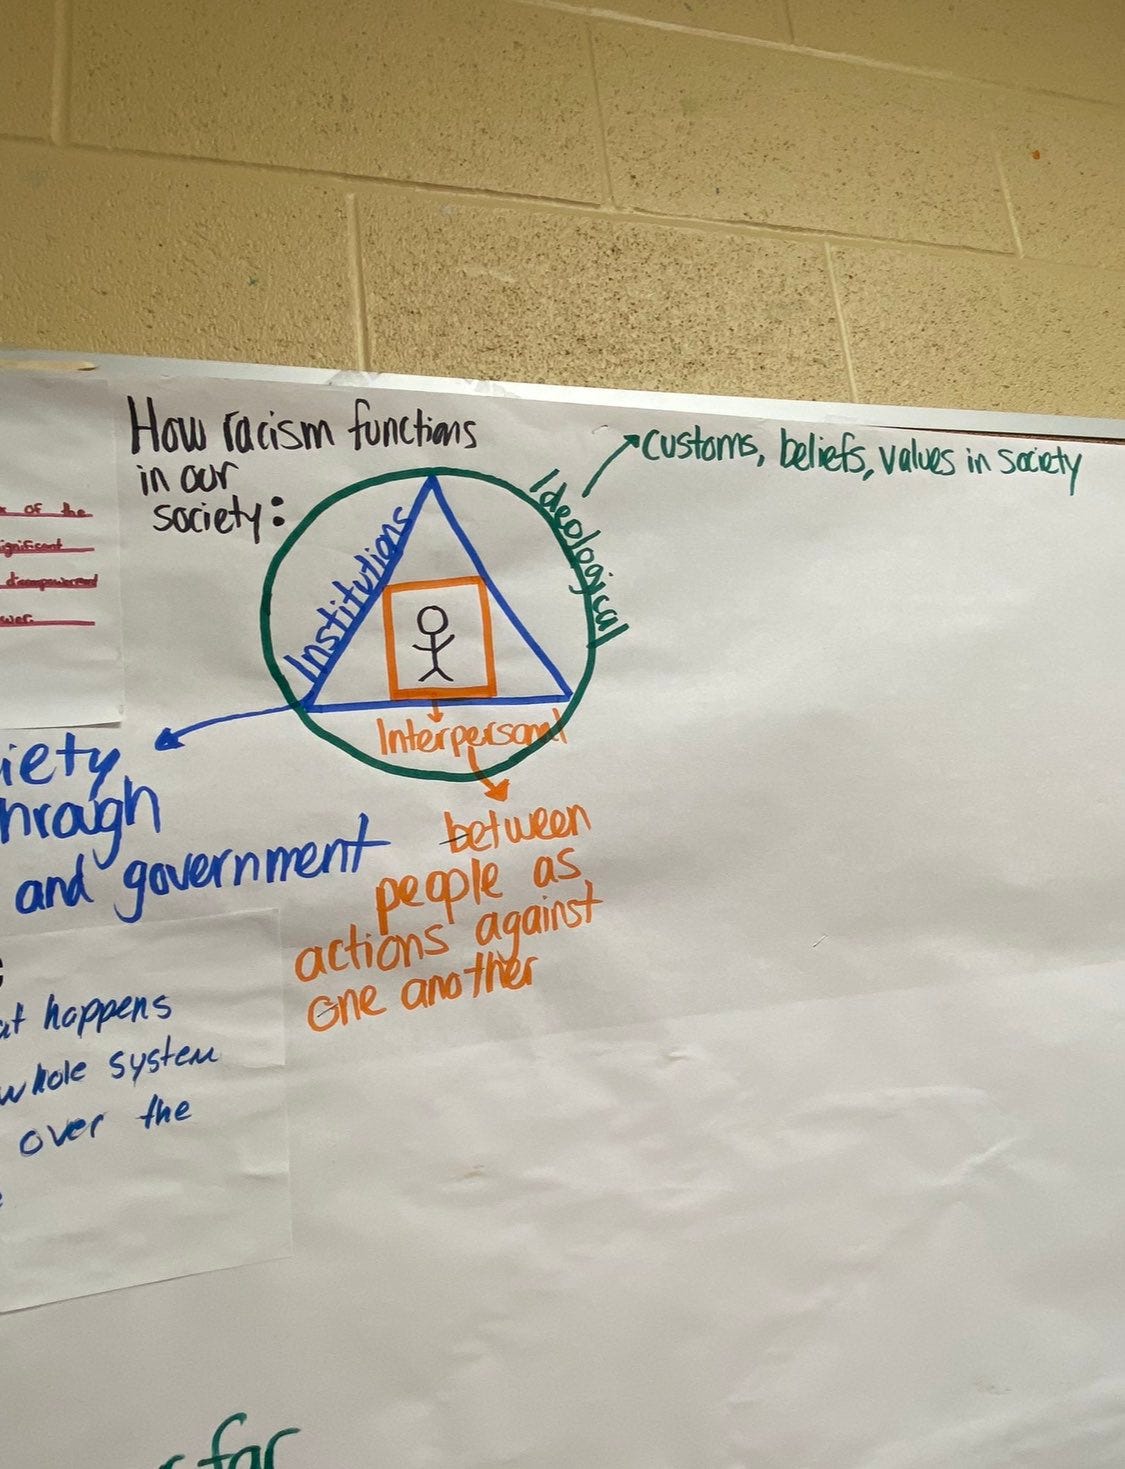 How racism functions
in our
society:
Ideological
customs, beliefs, values in society
Institutions
Interpersonal
of the
ignificant
wer
iety
hrough
and government
between
people as
actions against
one another
at happens
whole system
over the
far